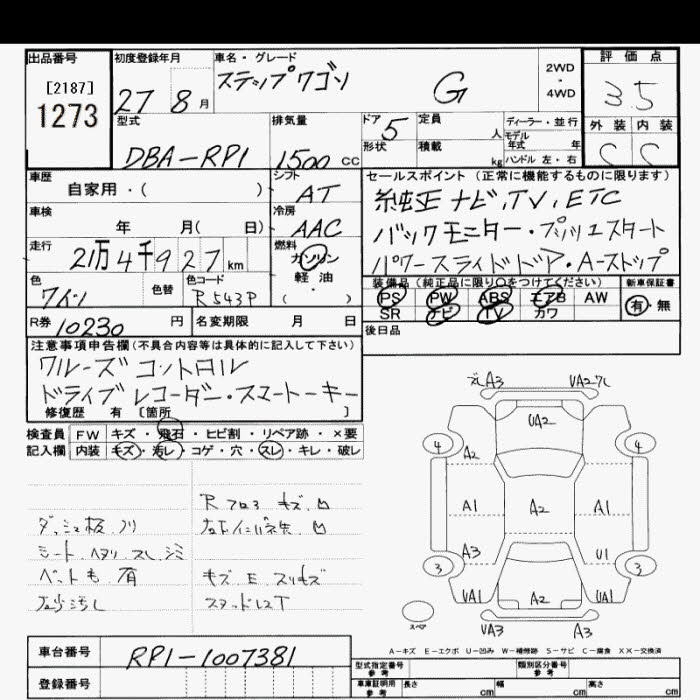 出品番号
[2187]
1273
初度登録年月
27 8 月
車名・グレード
ステップワゴン G
2WD
・
4WD
評価点
3.5
型式
DBA-RP1
排気量
1500 cc
ドア
5
形状
定員
人
積載
kg
ディーラー・並行
モデル
年式 年
ハンドル 左・右
外装 内装
C C
車歴
自家用・( )
シフト
AT
セールスポイント (正常に機能するものに限ります)
純正ナビ,TV,ETC
バックモニター・プッシュスタート
パワースライドドア・A-ストップ
車検
年 月( 日)
冷房
AAC
走行
21万4千927 km
燃料
ガソリン
軽・油
( ・ )
色
ワイン
色替
色コード
R543P
装備品 (純正品に限り○をつけてください)
PS PW ABS エアB AW
SR ナビ TV カワ
新車保証書
有・無
R券 10230 円
名変期限 月 日
後日品
注意事項申告欄(不具合内容等は具体的に記入して下さい)
クルーズコントロル
ドライブレコーダー・スマートーキー
修復歴 有 [箇所 ]
検査員 FW キズ・飛石・ヒビ割・リペア跡・×要
記入欄 内装 キズ・汚レ・コゲ・穴・スレ・キレ・破レ
ダッシュ板ノリ
シート ヘタリ スレ シミ
ペットも 有
キズ E スリキズ
A3
UA2
A2
4
4
A2
A1
A2
A1
A3
U1
3
3
UA1
A2
UA1
スペア
UA3
A3
A-キズ E-エクボ U-凹み W-補修跡 S-サビ C-腐食 XX-交換済
車台番号 RP1-1007381
登録番号
型式指定番号
参考
類別区分番号
参考
車庫証明用
参考
長さ cm 幅 cm 高さ cm